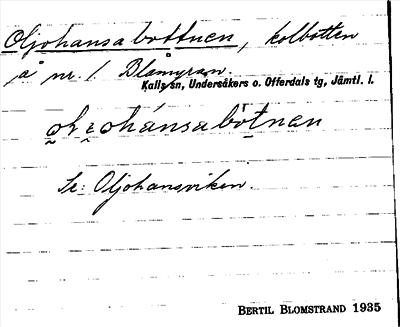 Oljohansabottnen, kolbotten
å nr. 1. Blåmyran.
Kalls sn, Undersåkers o. Offerdals tg, Jämtl. l.
Se: Oljohansviken.
BERTIL BLOMSTRAND 1935